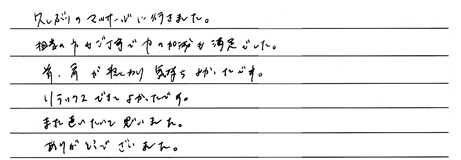 久しぶりのマッサージに行きました。
担当の方もご丁寧で力の加減も満足でした。
首、肩がやわらかく気持ちよかったです。
リラックスできてよかったです。
また色いたいと思いました。
ありがとうございました。